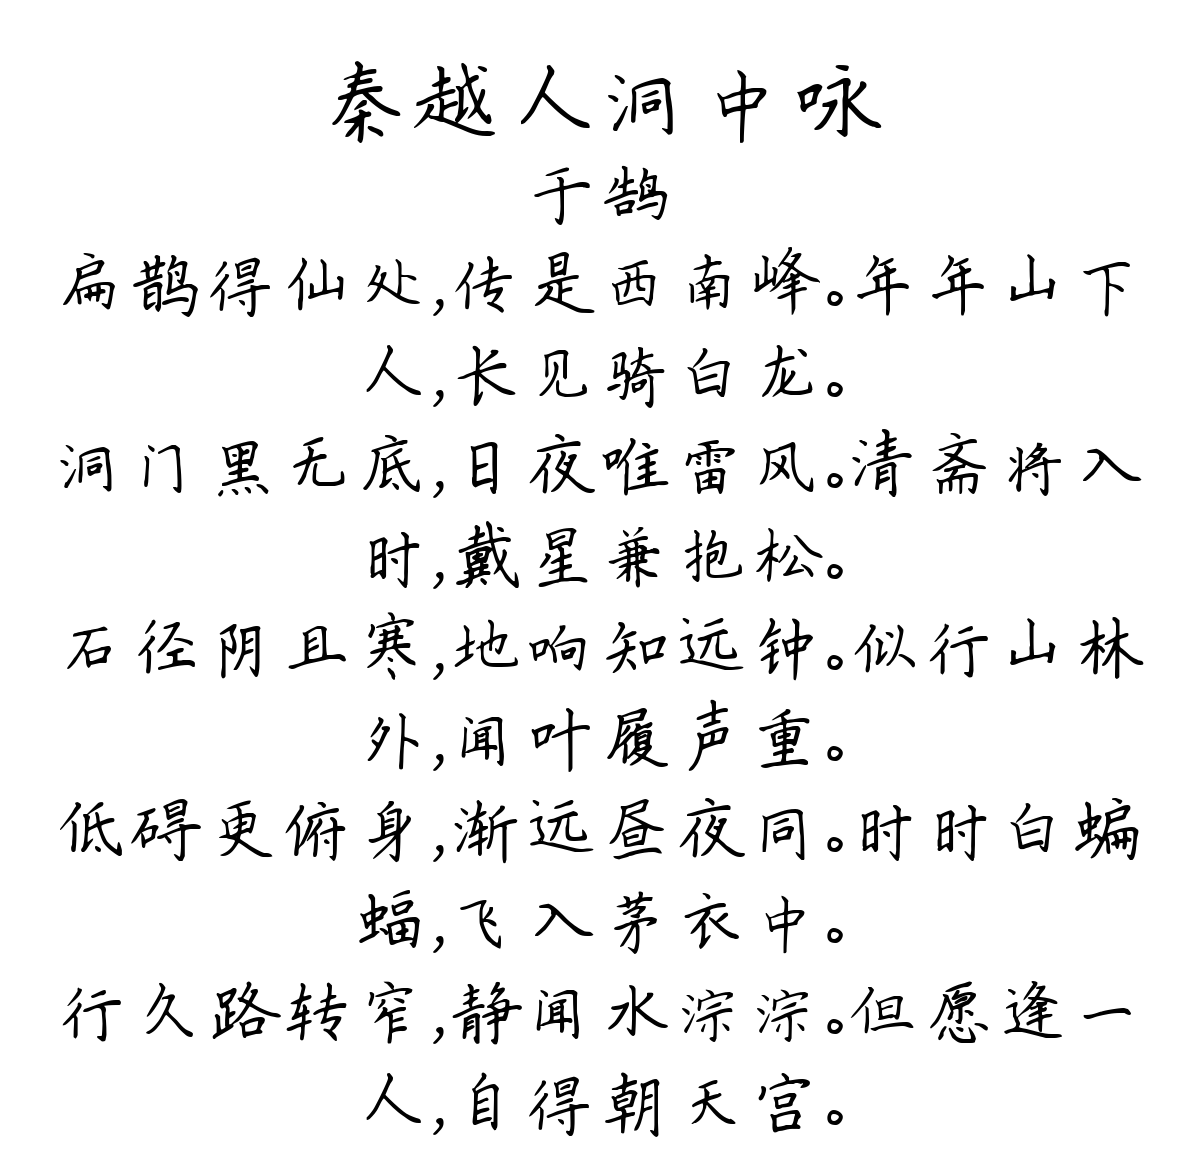 秦越人洞中咏
于鹄
扁鹊得仙处,传是西南峰。年年山下
人,长见骑白龙。
洞门黑无底,日夜唯雷风。清斋将入
时,戴星兼抱松。
石径阴且寒,地响知远钟。似行山林
外,闻叶履声重。
低碍更俯身,渐远昼夜同。时时白蝙
蝠,飞入茅衣中。
行久路转窄,静闻水淙淙。但愿逢一
人,自得朝天宫。